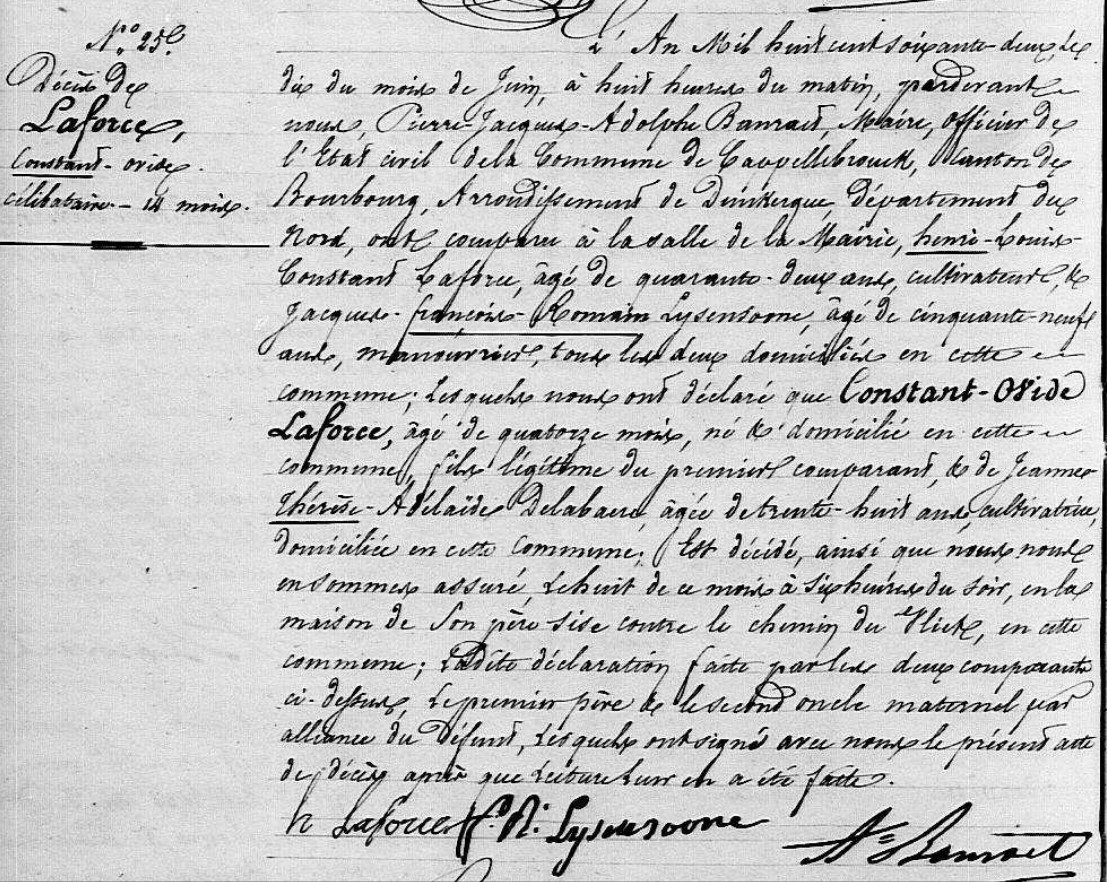 N.° 25.
Décès de
Laforce,
Constant-ovide.
célibataire - 14 mois.
L'An Mil huit cent soixante-deux, Le
dix du mois de Juin, à huit heures du matin, pardevant
nous, Pierre-Jacques-Adolphe Banraet, Maire, officier de
l'Etat civil de la Commune de Cappellebrouck, Canton de
Bourbourg, Arrondissement de Dunkerque, Département du
Nord, ont comparu à la salle de la Mairie, henri-Louis-
Constant Laforce, âgé de quarante-deux ans, cultivateur, &
Jacques-françois-Romain Lysensoone, âgé de cinquante-neuf
ans, manouvrier, tous les deux domiciliés en cette
commune; Lesquels nous ont déclaré que Constant-Ovide
Laforce, âgé de quatorze mois, né & domicilié en cette
commune, fils légitime du premier comparant, & de Jeanne-
Thérèse-Adélaïde Delabaere, âgée de trente-huit ans, cultivatrice,
domiciliée en cette Commune; Est décédé, ainsi que nous nous
en sommes assuré, Le huit de ce mois à six heures du soir, en la
maison de Son père sise contre le chemin du Vliet, en cette
commune; Ladite déclaration faite par les deux comparants
ci-dessus, Le premier père & le second oncle maternel par
alliance du Défunt, Lesquels ont signé avec nous le présent acte
de décès après que Lecture Leur en a été faite.
h Laforce f. R. Lysensoone
Ad Banraet